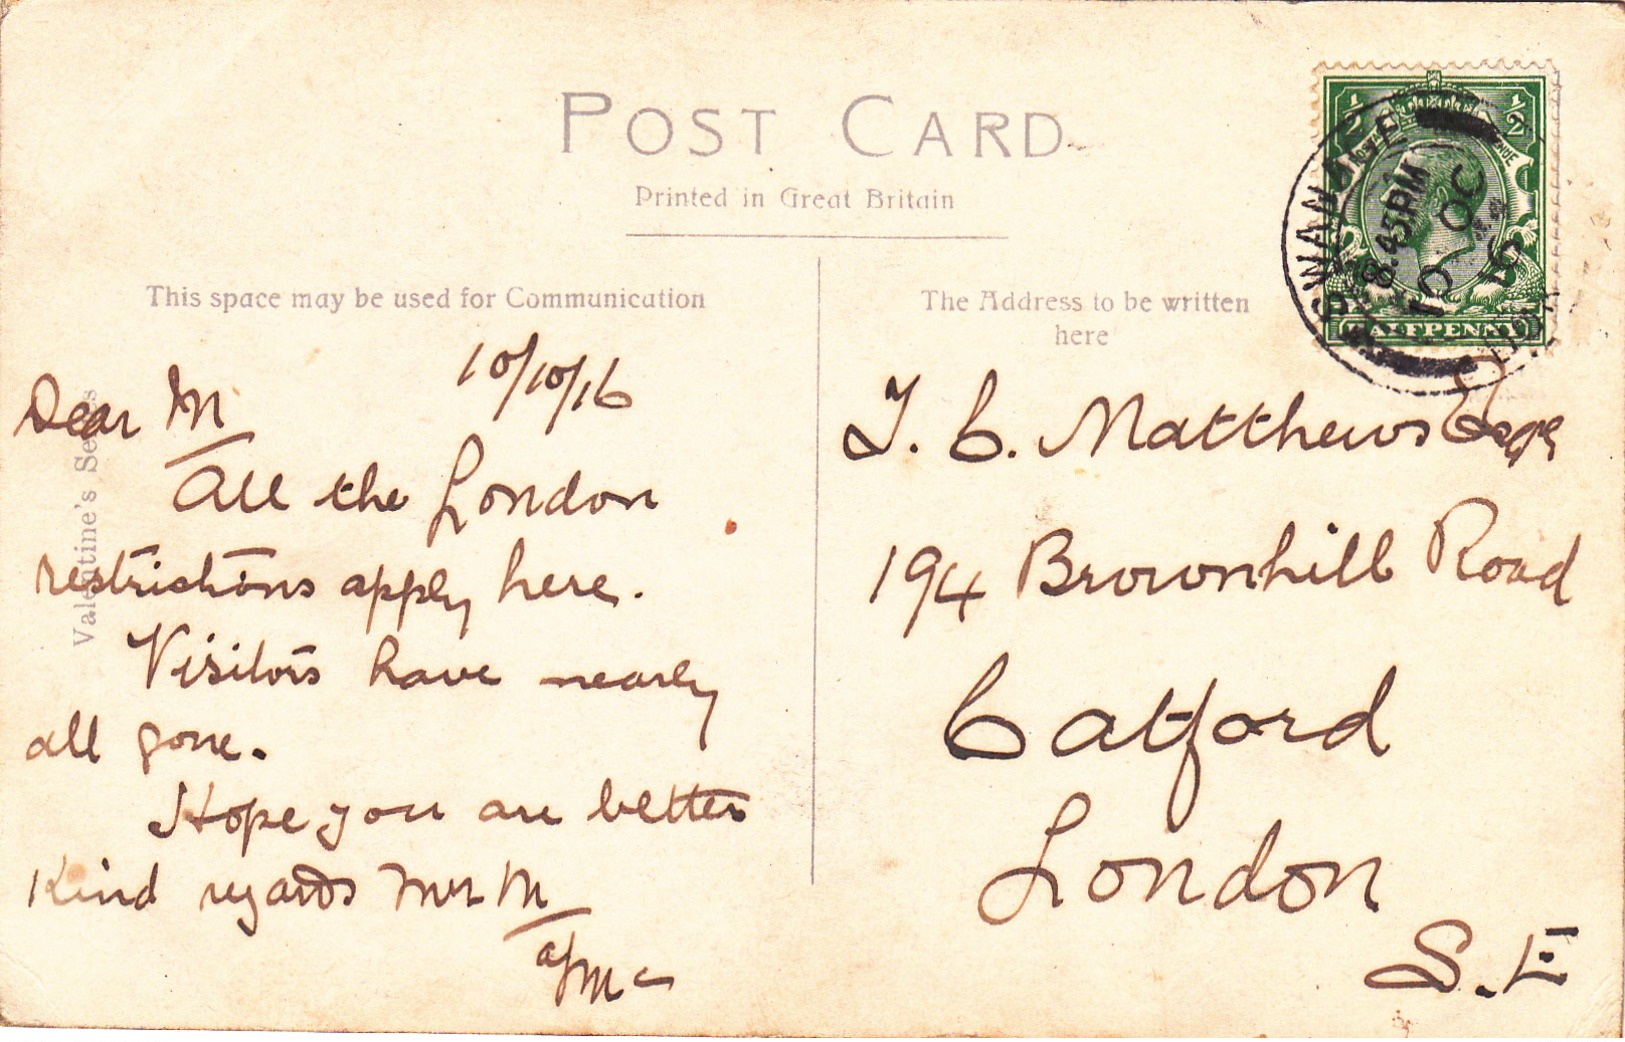 POST CARD
Printed in Great Britain
This space may be used for Communication
The Address to be written
here
Valentine's Series
10/10/16
Dear M
All the London
restrictions apply here.
Visitors have nearly
all gone.
Hope you are better
Kind regards Mrs M
T. C. Matthews Esqre
194 Brownhill Road
Catford
London
S.E
SWANAGE
8.45PM
10 OC
16
½ ½
HALFPENNY